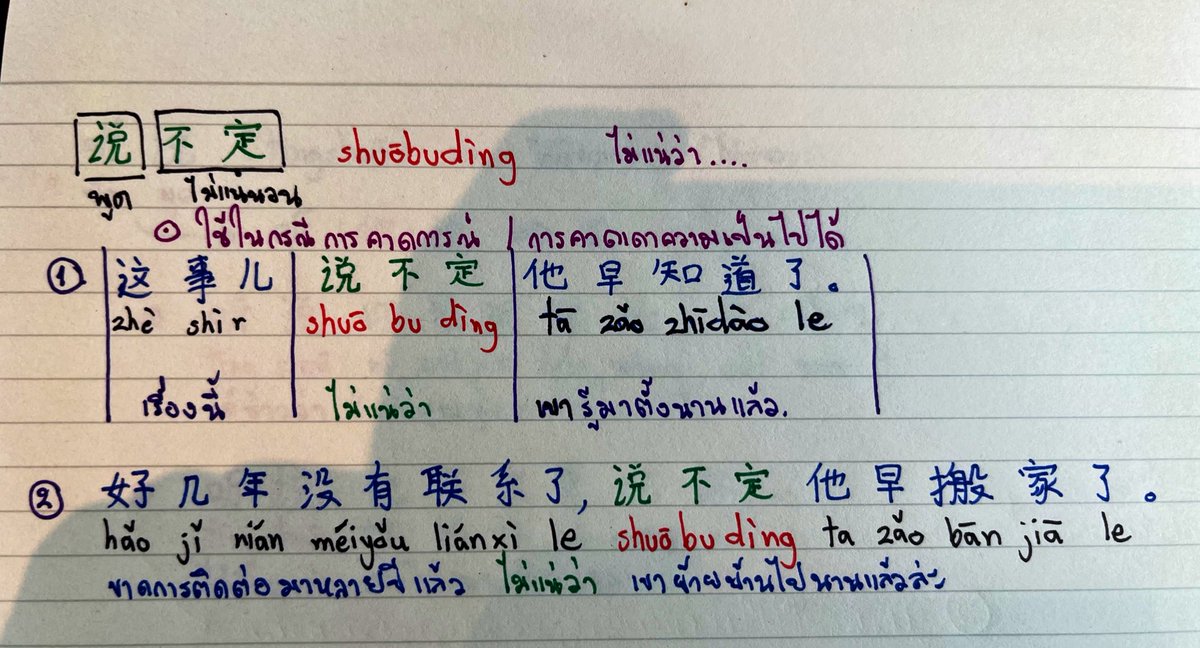 说 不 定 shuōbudìng ไม่แน่ว่า....
พูด ไม่แน่นอน
⊙ ใช้ในกรณี การคาดการณ์ / การคาดเดาความเป็นไปได้
① 这 事 儿 说 不 定 他 早 知 道 了 。
zhè shìr shuō bu dìng tā zǎo zhīdào le
เรื่องนี้ ไม่แน่ว่า เขารู้มาตั้งนานแล้ว.
② 好 几 年 没 有 联 系 了, 说 不 定 他 早 搬 家 了 。
hǎo jǐ nián méiyǒu liánxì le shuōbudìng ta zǎo bān jiā le
ขาดการติดต่อมาหลายปีแล้ว ไม่แน่ว่า เขาย้ายบ้านไปนานแล้วล่ะ